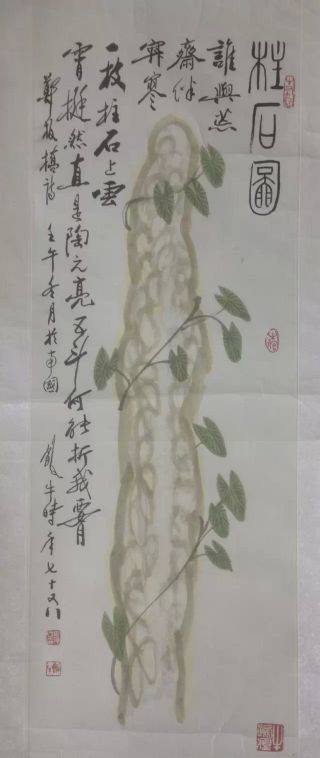 柱石圖
誰與荒
齋伴
寂寥
一枝柱石上雲
霄挺然直是陶元亮五斗何能折我腰
鄭板橋詩 壬午冬月於南國 牛時年七十又八